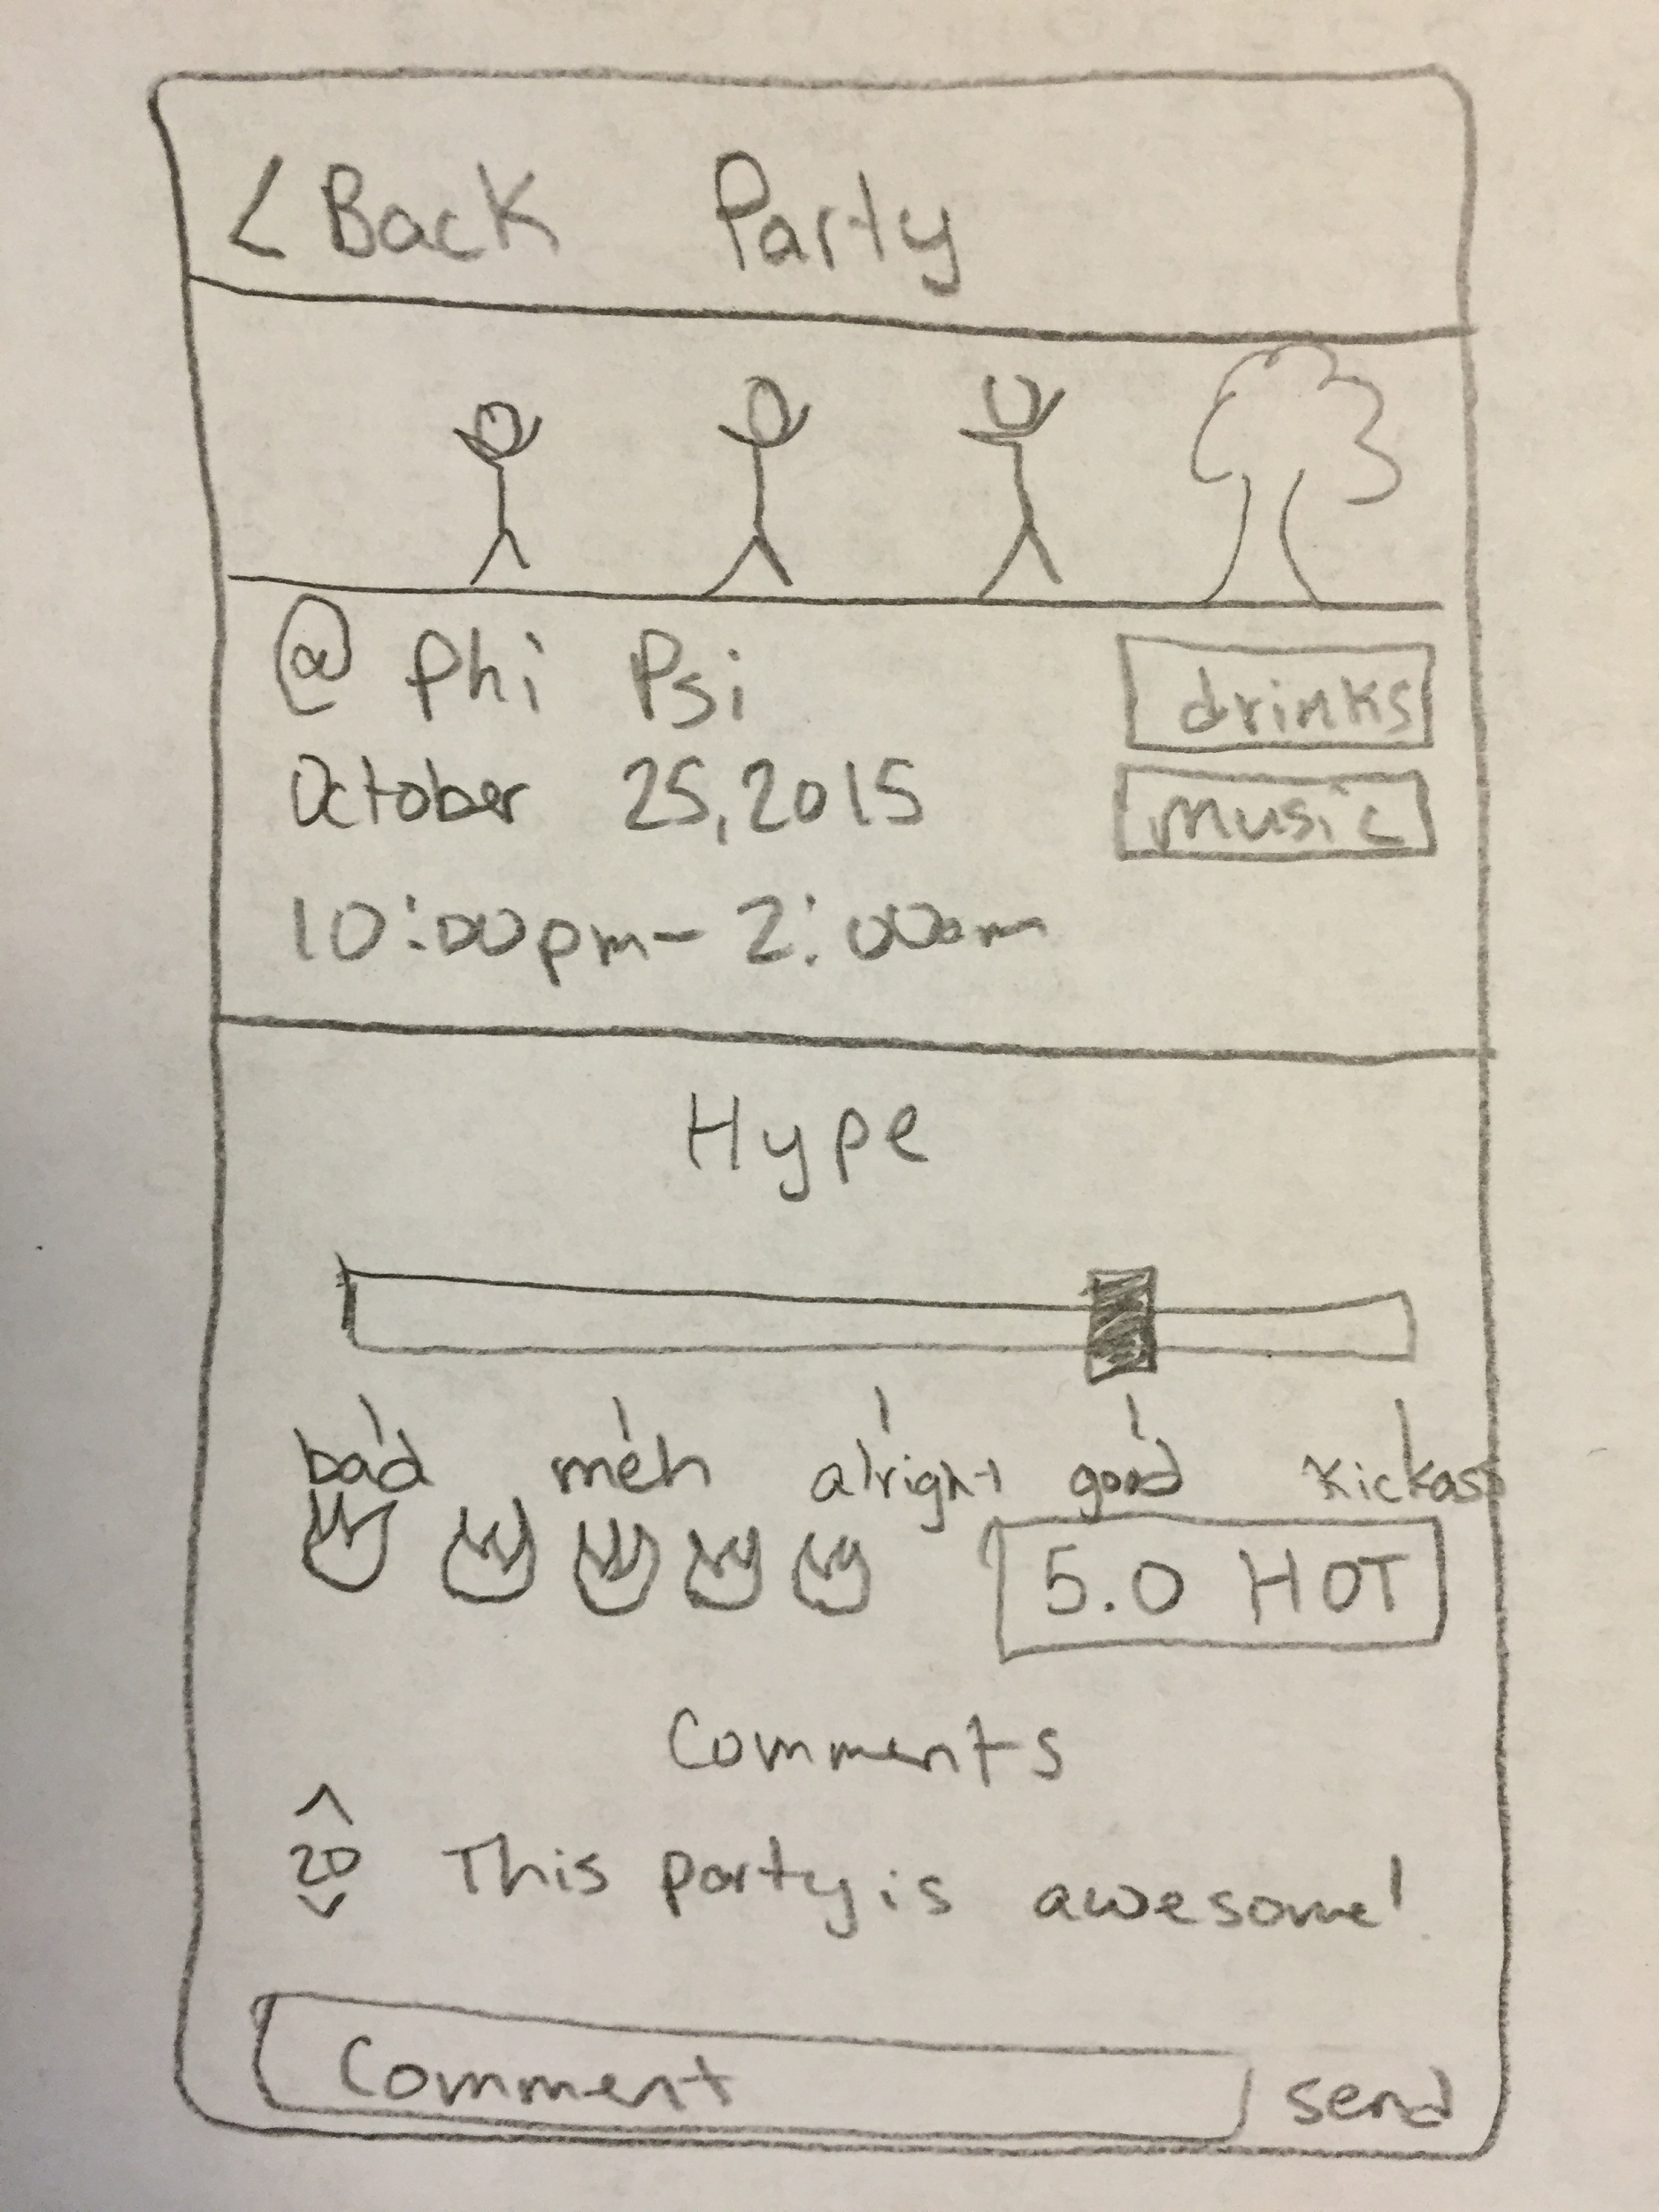 < Back Party
@ Phi Psi
drinks
October 25, 2015
music
10:00pm - 2:00am
Hype
bad meh alright good kickass
5.0 HOT
Comments
20 This party is awesome!
Comment send